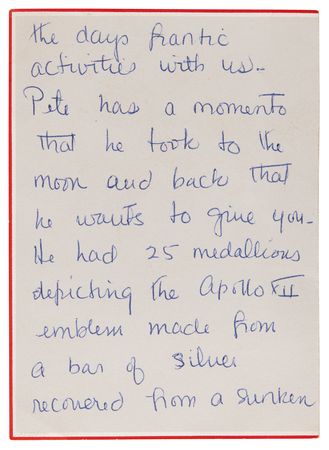 the days frantic
activities with us-
Pete has a momento
that he took to the
moon and back that
he wants to give you-
He had 25 medallions
depicting the Apollo XII
emblem made from
a bar of silver
recovered from a sunken